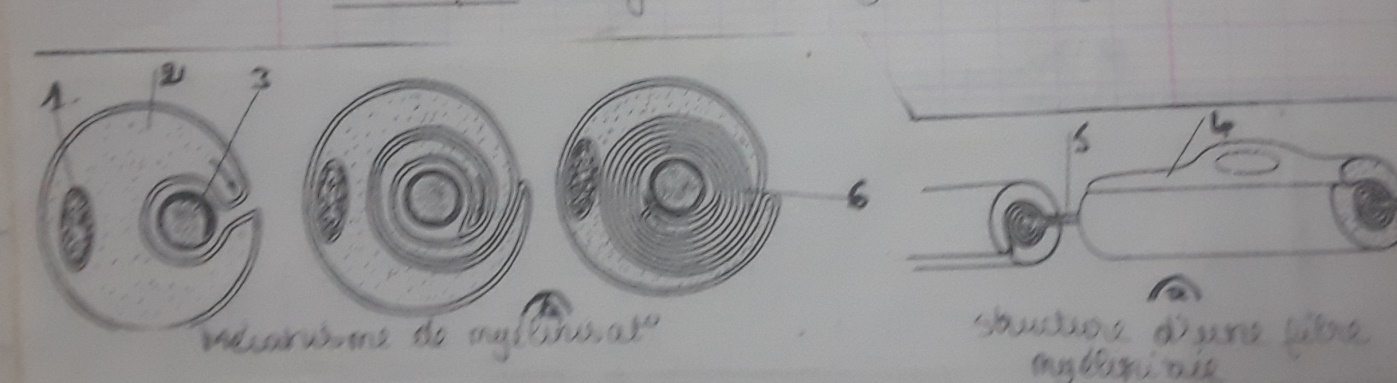 1 2 3
6
5 4
Mécanisme de myélinisat°
Structure d'une fibre
myélinisée